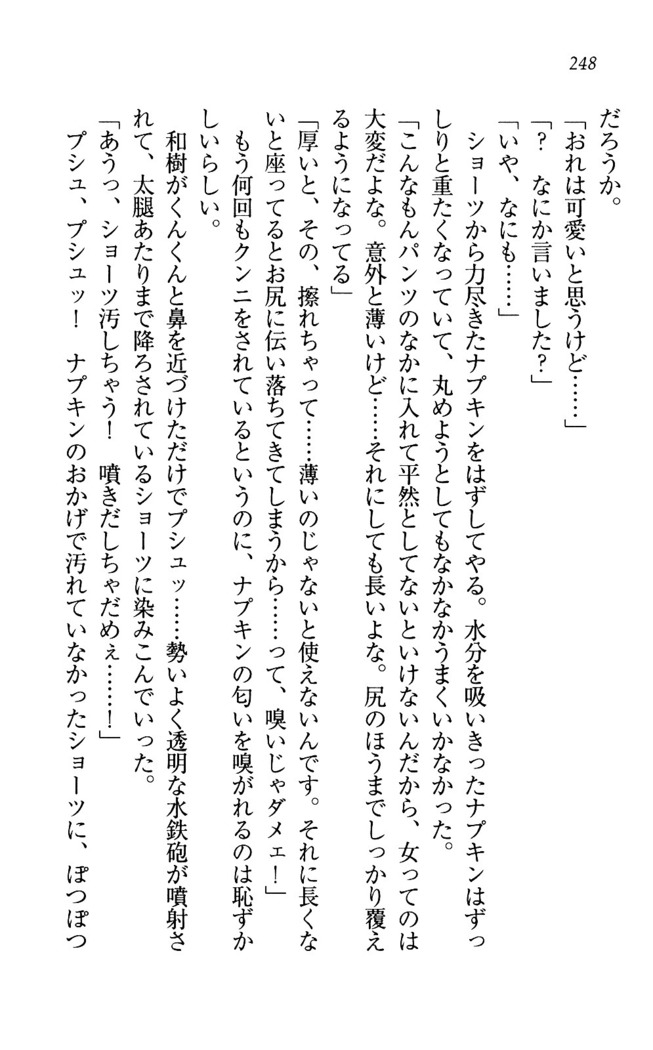 248
だろうか。
「おれは可愛いと思うけど……」
「？　なにか言いました？」
「いや、なにも……」
　ショーツから力尽きたナプキンをはずしてやる。水分を吸いきったナプキンはずっ
しりと重たくなっていて、丸めようとしてもなかなかうまくいかなかった。
「こんなもんパンツのなかに入れて平然としてないといけないんだから、女ってのは
大変だよな。意外と薄いけど……それにしても長いよな。尻のほうまでしっかり覆え
るようになってる」
「厚いと、その、擦れちゃって……薄いのじゃないと使えないんです。それに長くな
いと座ってるとお尻に伝い落ちてきてしまうから……って、嗅いじゃダメェ！」
　もう何回もクンニをされているというのに、ナプキンの匂いを嗅がれるのは恥ずか
しいらしい。
　和樹がくんくんと鼻を近づけただけでプシュッ……勢いよく透明な水鉄砲が噴射さ
れて、太腿あたりまで降ろされているショーツに染みこんでいった。
「あうっ、ショーツ汚しちゃう！　噴きだしちゃだめぇ……！」
　プシュ、プシュッ！　ナプキンのおかげで汚れていなかったショーツに、ぽつぽつ